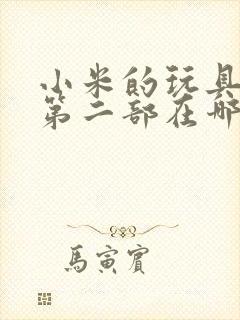 小米的玩具
第二部在哪
馬寅賓